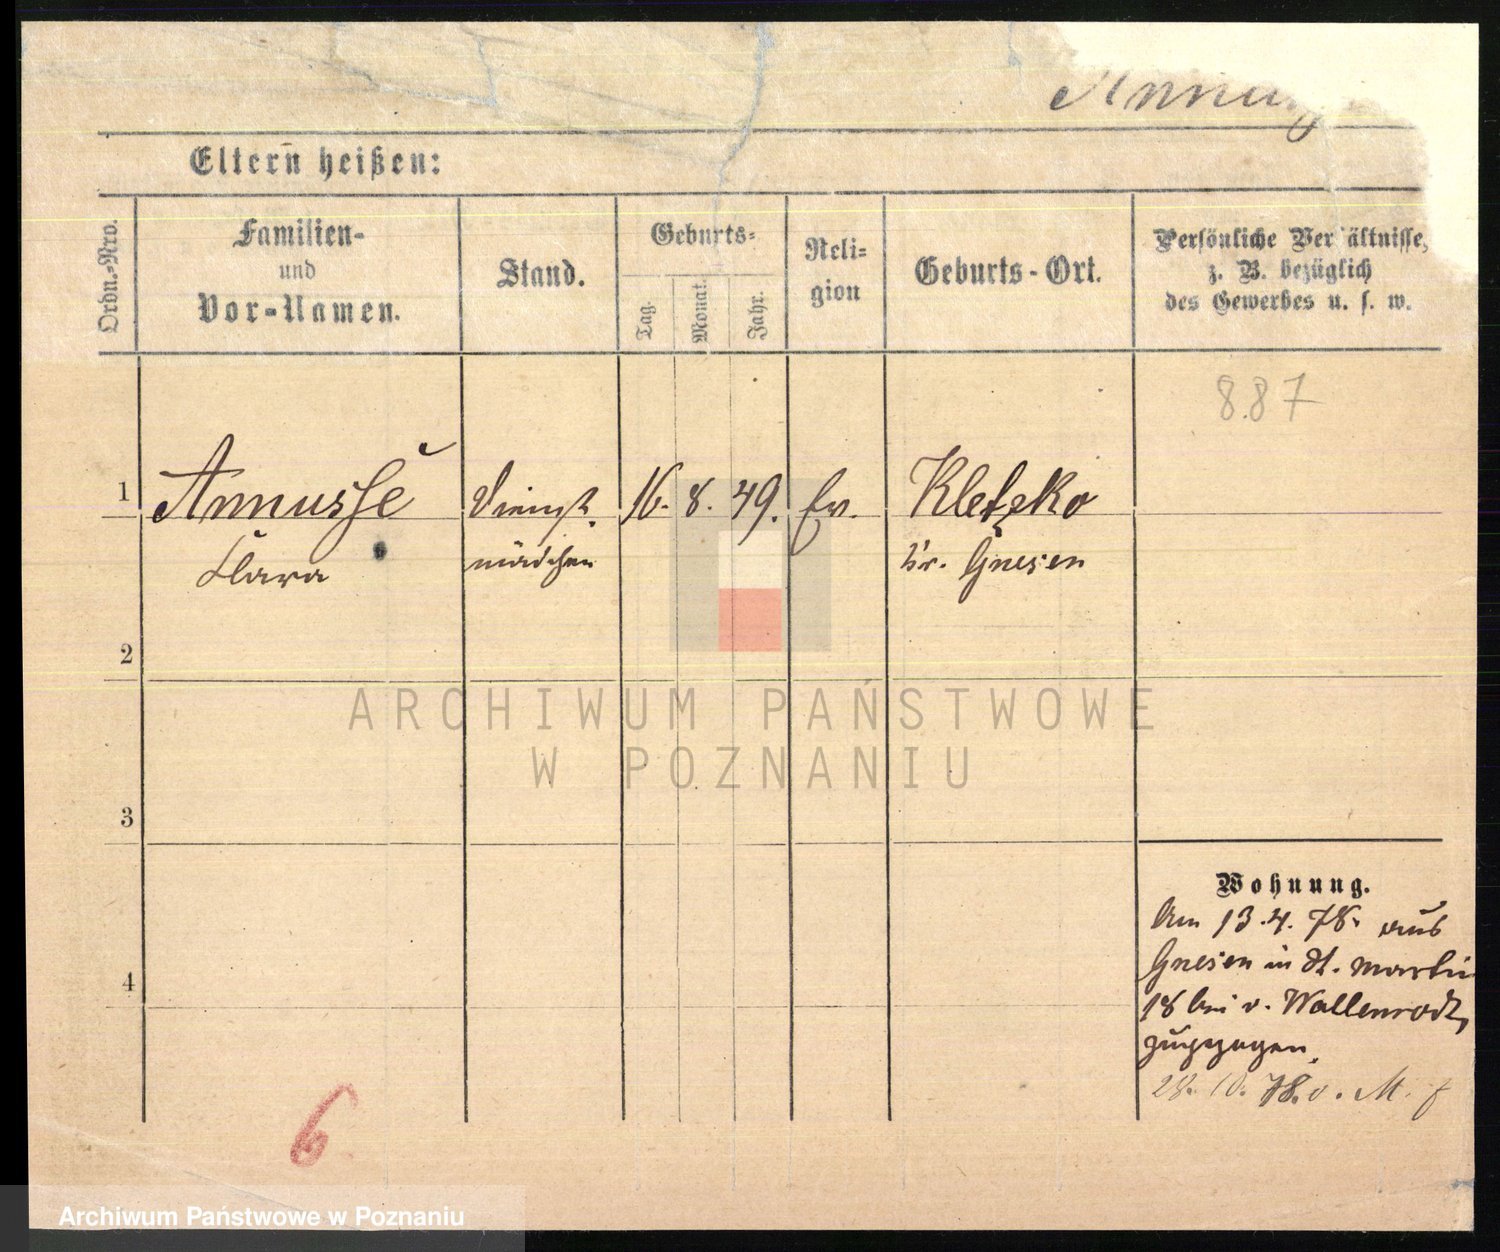 Eltern heißen:
Ordn.-Nro.
Familien-
und
Vor-Namen.
Stand.
Geburts-
Tag.
Monat.
Jahr.
Reli-
gion
Geburts-Ort.
Persönliche Verhältnisse,
z. B. bezüglich
des Gewerbes u. s. w.
887
1 Annusse Dienst 16. 8. 49. Ev. Kletzko
Clara mädchen Kr. Gnesen
2
3
4
Wohnung.
Am 13.4.78. aus
Gnesen in St. Martin
18 bei v. Wallenrodt,
zugezogen.
28. 10. 78. M.
6
ARCHIWUM PAŃSTWOWE
W POZNANIU
Archiwum Państwowe w Poznaniu